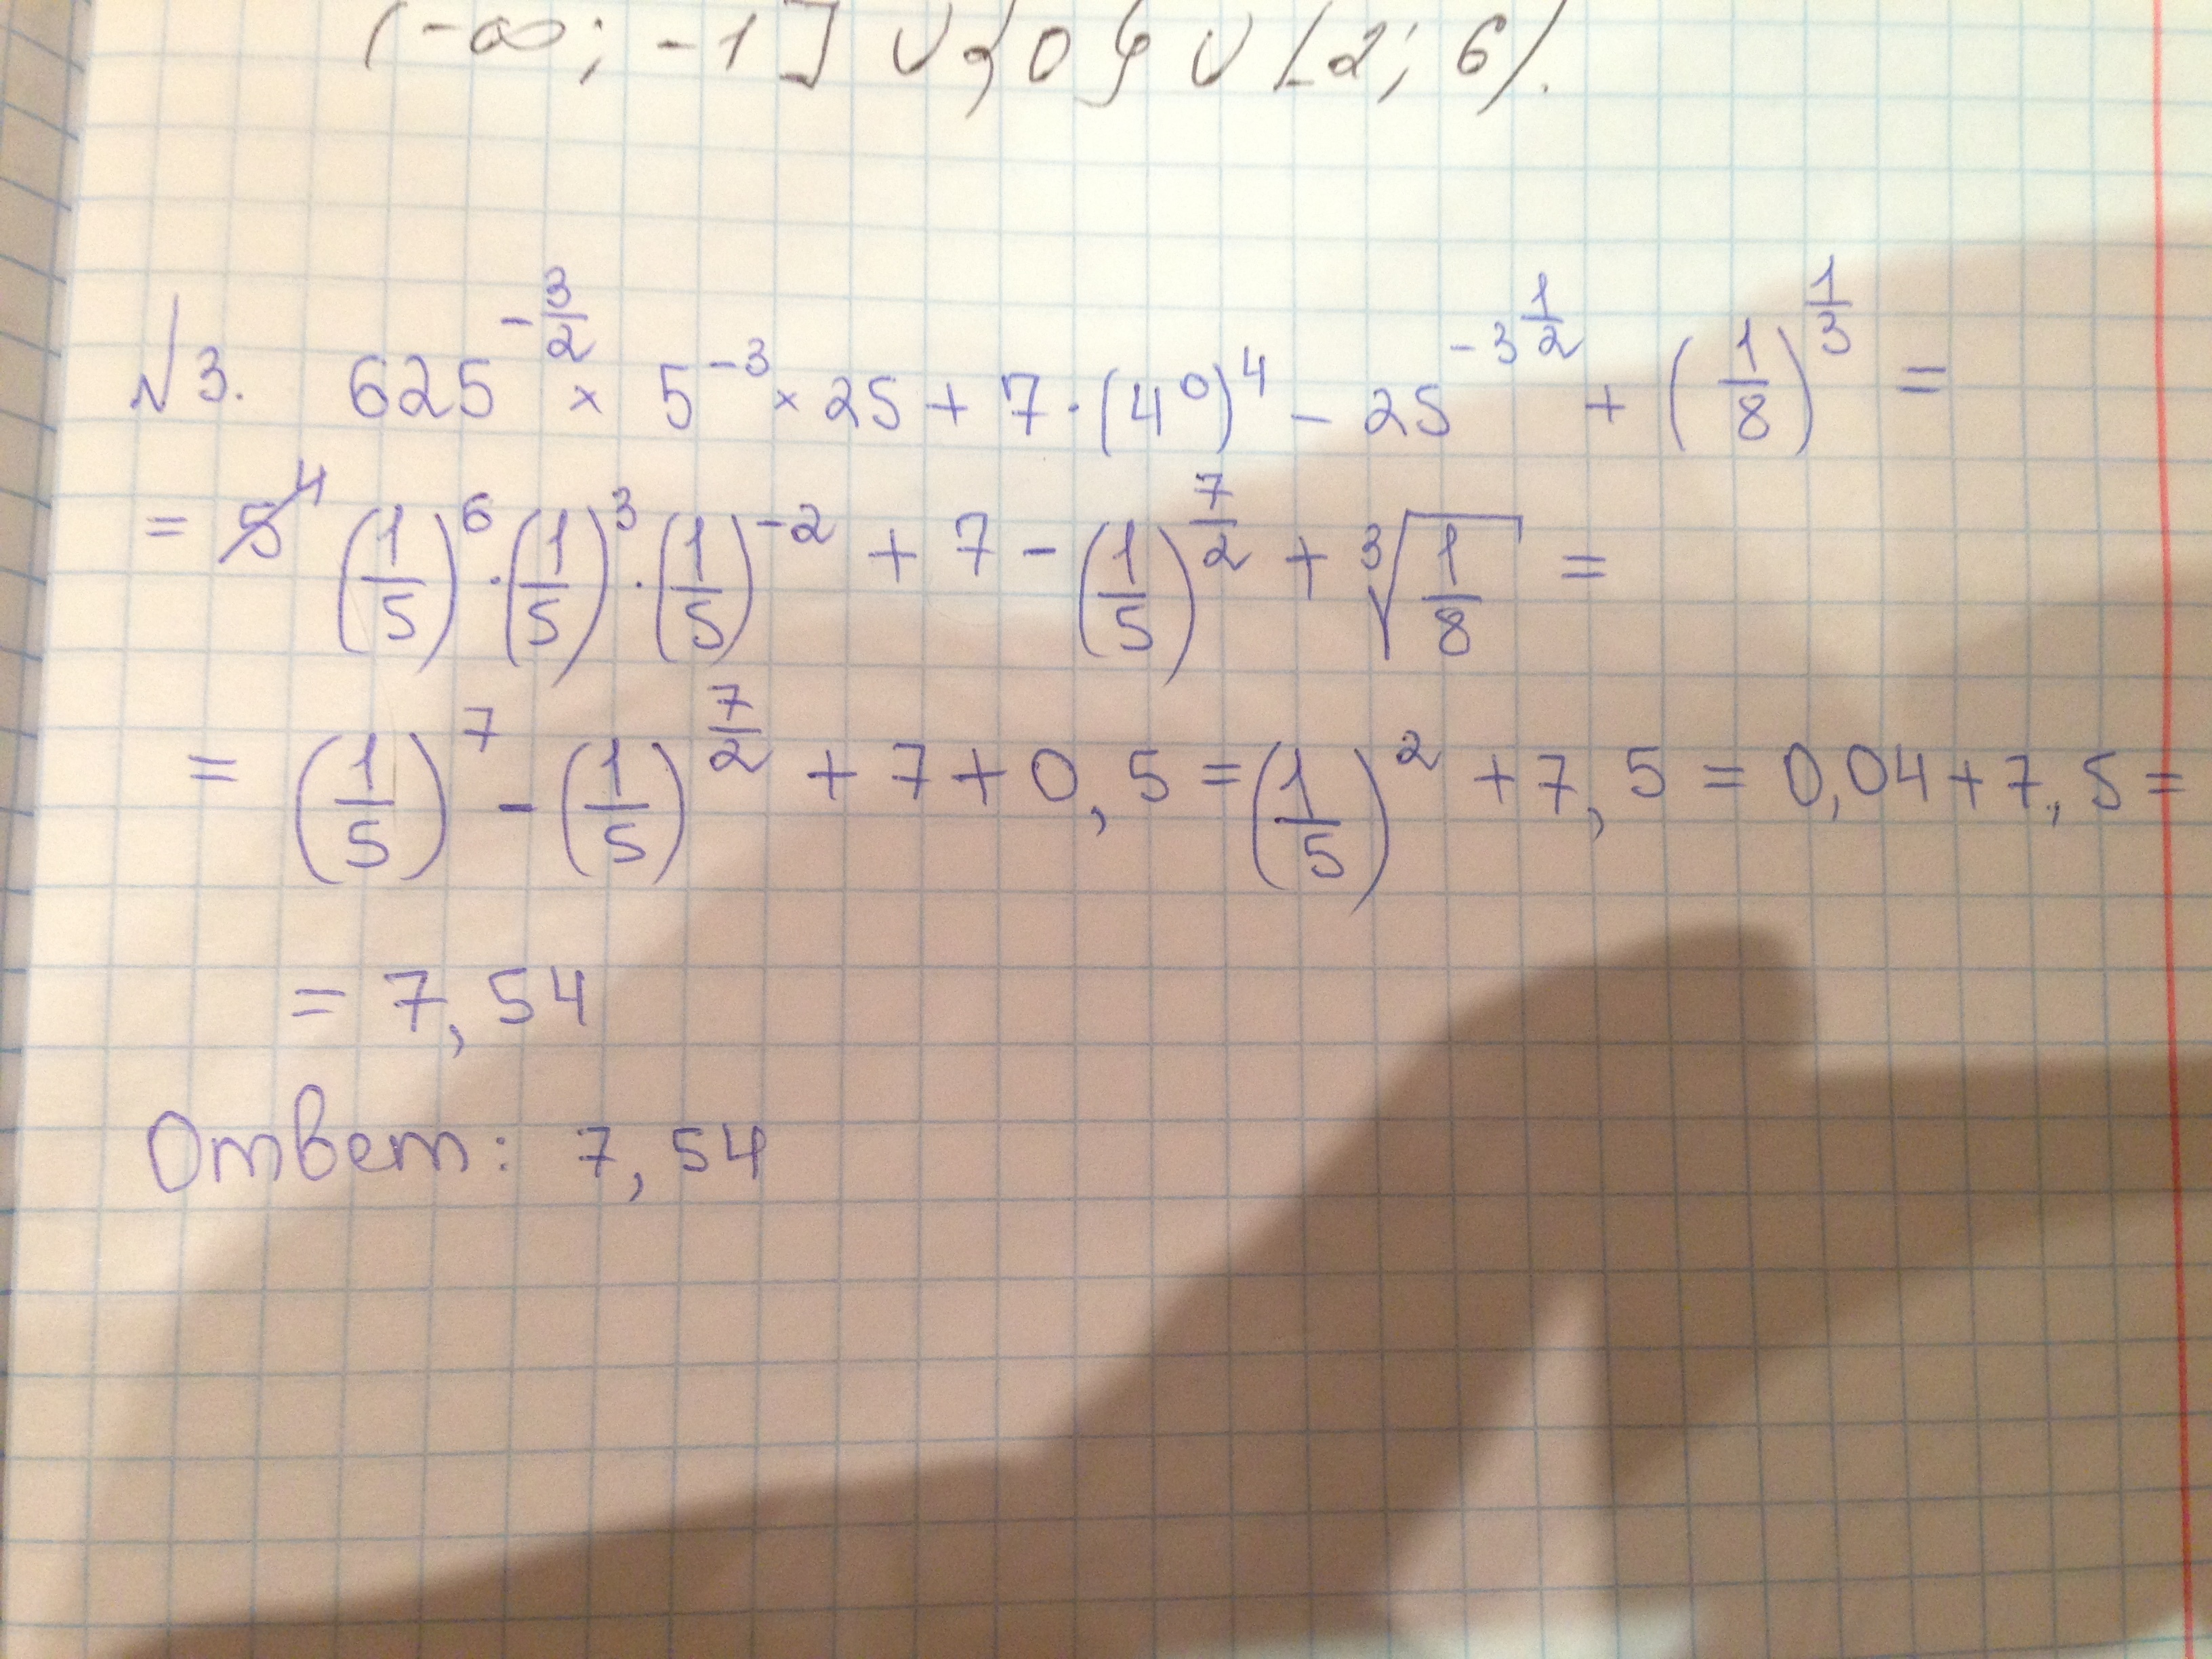 (-∞; -1] ∪ {0} ∪ [2; 6).
√3. 625^(-3/2) × 5^(-3) × 25 + 7 · (4^0)^4 - 25^(-3 1/2) + (1/8)^(1/3) =
= 5^4 (1/5)^6 · (1/5)^3 · (1/5)^(-2) + 7 - (1/5)^(7/2) + ∛(1/8) =
= (1/5)^7 - (1/5)^(7/2) + 7 + 0,5 = (1/5)^2 + 7,5 = 0,04 + 7,5 =
= 7,54
Ответ: 7,54